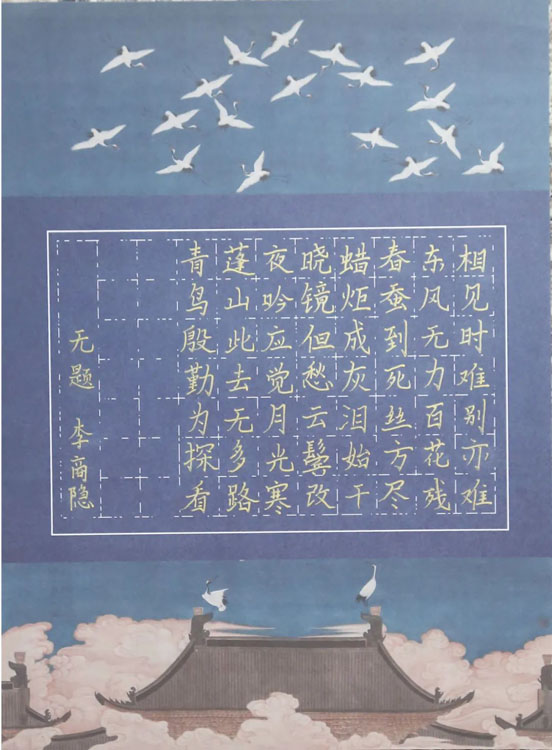 相见时难别亦难
东风无力百花残
春蚕到死丝方尽
蜡炬成灰泪始干
晓镜但愁云鬓改
夜吟应觉月光寒
蓬山此去无多路
青鸟殷勤为探看
无题 李商隐